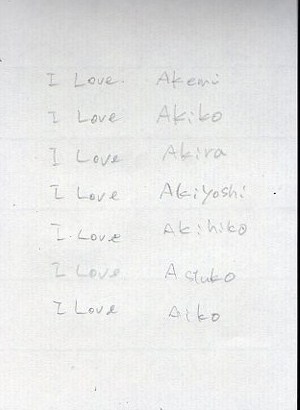 I Love Akemi
I Love Akiko
I Love Akira
I Love Akiyoshi
I Love Akihiko
I Love Asuko
I Love Aiko